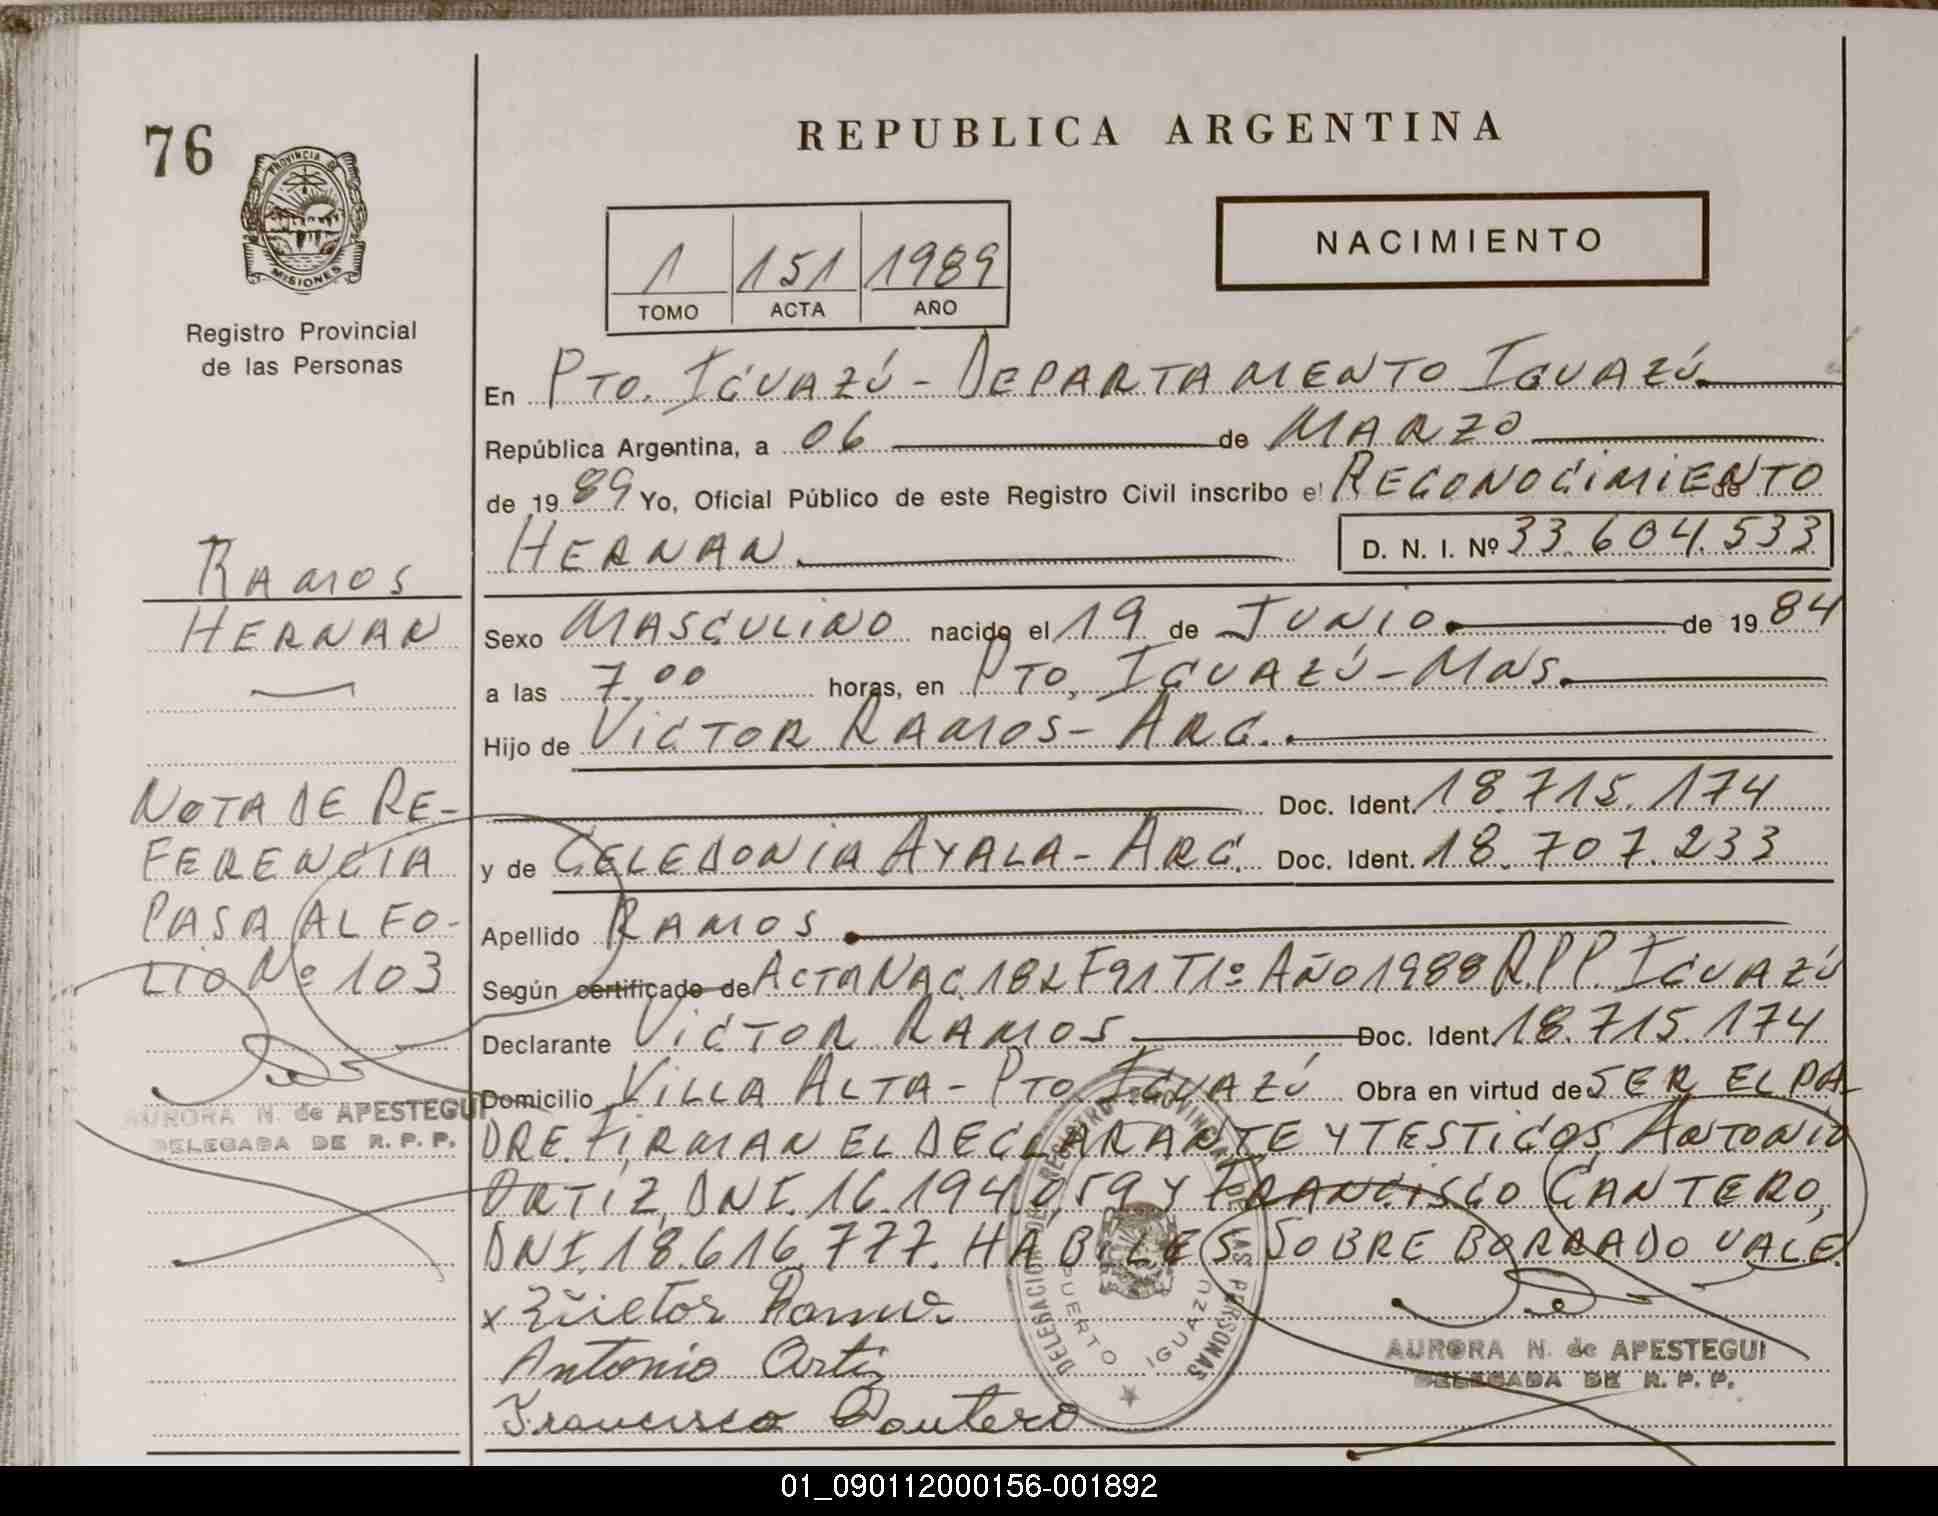 76
REPUBLICA ARGENTINA
PROVINCIA DE
MISIONES
Registro Provincial
de las Personas
1 151 1989
TOMO ACTA AÑO
NACIMIENTO
En PTO. IGUAZÚ - DEPARTAMENTO IGUAZÚ
República Argentina, a 06 de MARZO
de 1989 Yo, Oficial Público de este Registro Civil inscribo el RECONOCIMIENTO de
HERNAN D. N. I. Nº 33.604.533
RAMOS
HERNAN
Sexo MASCULINO nacido el 19 de JUNIO de 1984
a las 7,00 horas, en PTO, IGUAZÚ - MNS.
Hijo de VICTOR RAMOS - ARG.
Doc. Ident. 18.715.174
y de CELEDONIA AYALA - ARG. Doc. Ident. 18.707.233
Apellido RAMOS
Según certificado de ACTA NAC. 182 F91 T1º AÑO 1988 R.P.P. IGUAZÚ
Declarante VICTOR RAMOS Doc. Ident. 18.715.174
Domicilio VILLA ALTA - PTO IGUAZÚ Obra en virtud de SER EL PA-
DRE. FIRMAN EL DECLARANTE Y TESTIGOS, ANTONIO
ORTIZ, DNI. 16.194.059 Y FRANCISCO CANTERO,
DNI. 18.616.777. HÁBILES SOBRE BORRADO VALE.
NOTA DE RE-
FERENCIA
PASA AL FO-
LIO Nº 103
AURORA N. de APESTEGUI
DELEGADA DE R. P. P.
x Victor Ramos
Antonio Ortiz
Francisco Cantero
DELEGACION DEL REGISTRO PROVINCIAL DE LAS PERSONAS
PUERTO IGUAZU
AURORA N. de APESTEGUI
DELEGADA DE R. P. P.
01_090112000156-001892